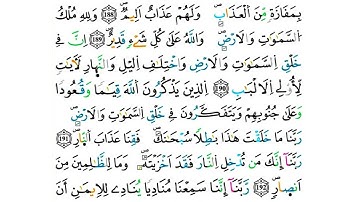 بِمَفَازَةٍ مِّنَ ٱلْعَذَابِ ۖ وَلَهُمْ عَذَابٌ أَلِيمٌ ۝١٨٨ وَلِلَّهِ مُلْكُ
ٱلسَّمَٰوَٰتِ وَٱلْأَرْضِ ۗ وَٱللَّهُ عَلَىٰ كُلِّ شَىْءٍ قَدِيرٌ ۝١٨٩ إِنَّ فِى
خَلْقِ ٱلسَّمَٰوَٰتِ وَٱلْأَرْضِ وَٱخْتِلَٰفِ ٱلَّيْلِ وَٱلنَّهَارِ لَءَايَٰتٍ
لِّأُو۟لِى ٱلْأَلْبَٰبِ ۝١٩٠ ٱلَّذِينَ يَذْكُرُونَ ٱللَّهَ قِيَٰمًا وَقُعُودًا
وَعَلَىٰ جُنُوبِهِمْ وَيَتَفَكَّرُونَ فِى خَلْقِ ٱلسَّمَٰوَٰتِ وَٱلْأَرْضِ
رَبَّنَا مَا خَلَقْتَ هَٰذَا بَٰطِلًا سُبْحَٰنَكَ فَقِنَا عَذَابَ ٱلنَّارِ ۝١٩١
رَبَّنَآ إِنَّكَ مَن تُدْخِلِ ٱلنَّارَ فَقَدْ أَخْزَيْتَهُۥ ۖ وَمَا لِلظَّٰلِمِينَ مِنْ
أَنصَارٍ ۝١٩٢ رَّبَّنَآ إِنَّنَا سَمِعْنَا مُنَادِيًا يُنَادِى لِلْإِيمَٰنِ أَنْ